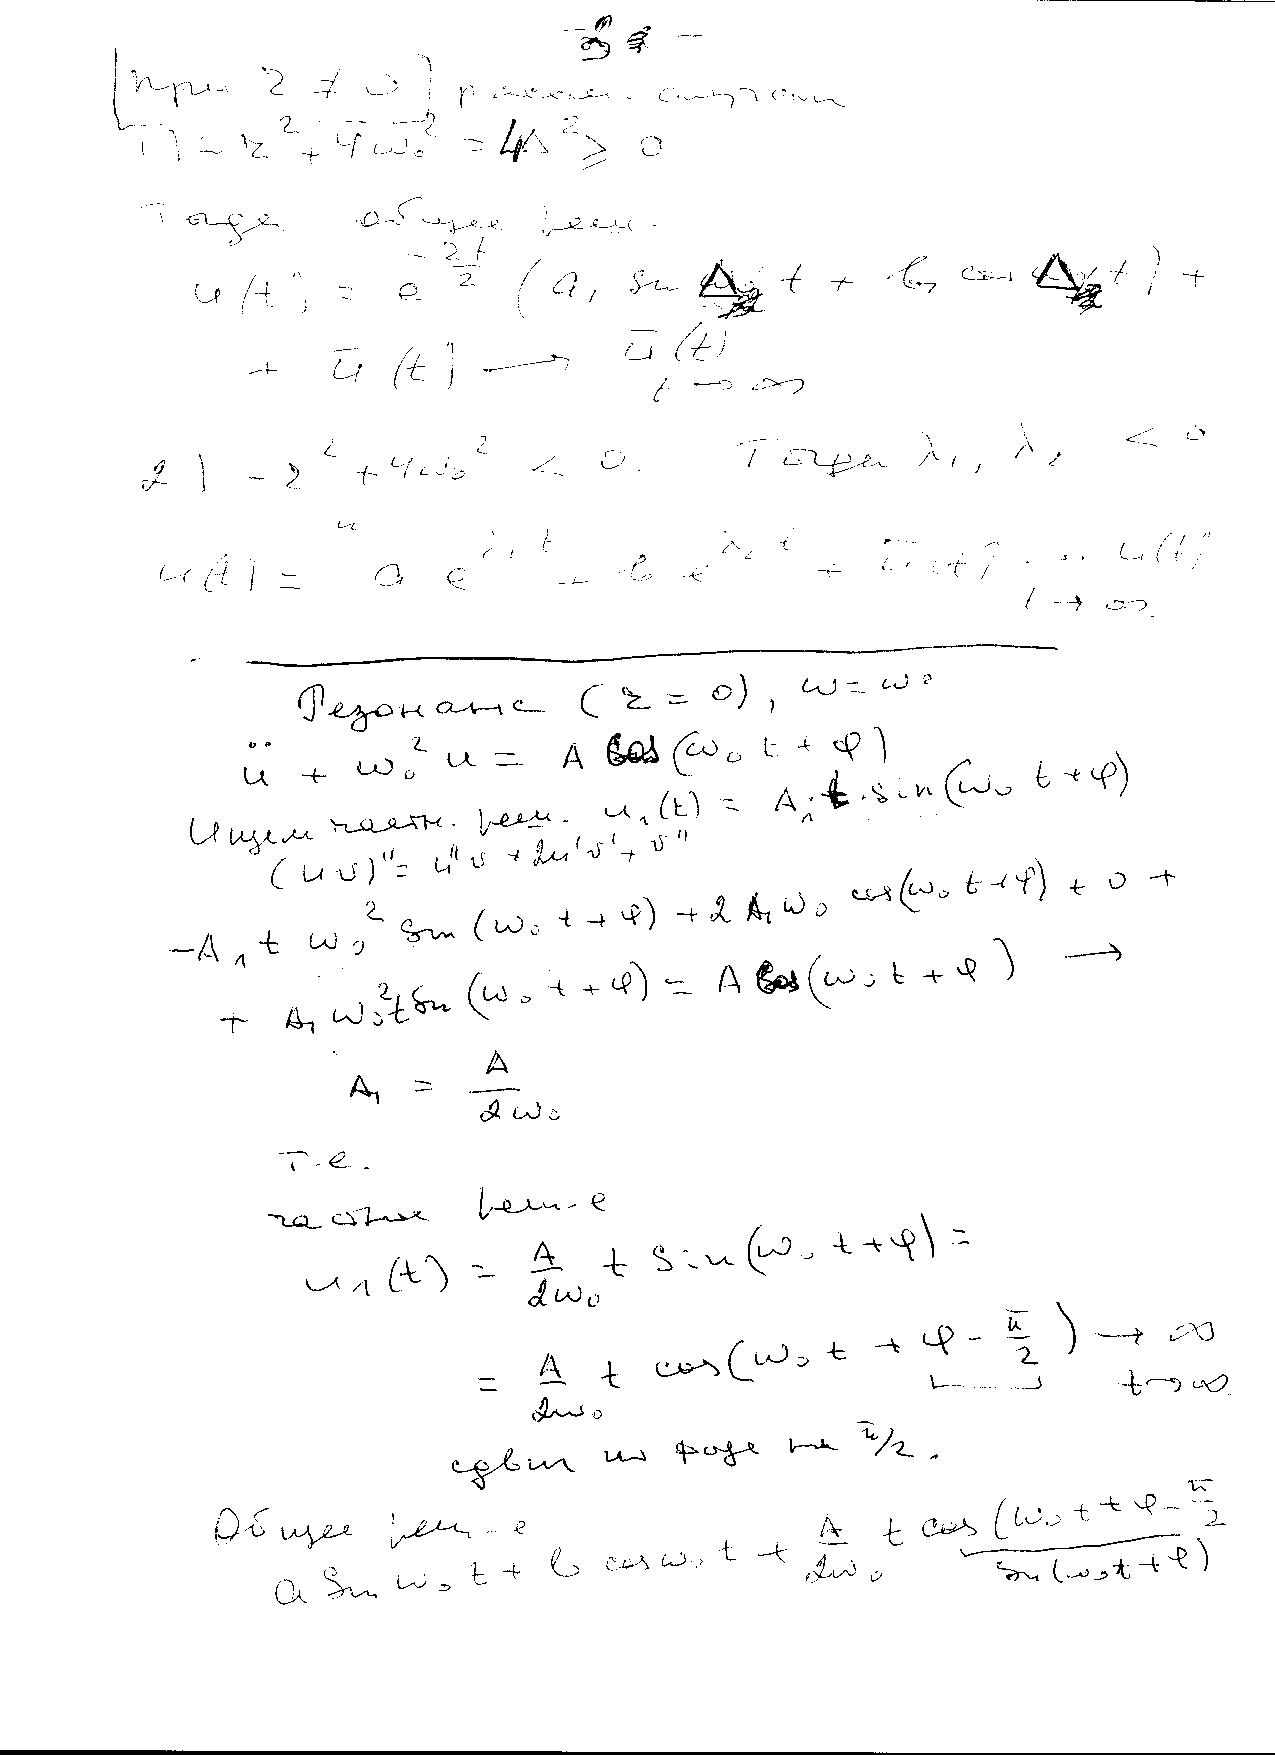 [При r ≠ 0] рассм. случаи
1) -r² + 4ω₀² = 4Δ² ≥ 0
Тогда общее реш.
u(t) = e^{-rt/2} (a₁ sin Δ t + b₁ cos Δ t) +
+ ū(t) → ū(t)
t → ∞
2) -r² + 4ω₀² < 0. Тогда λ₁, λ₂ < 0
и
u(t) = a e^{λ₁t} + b e^{λ₂t} + ū(t) → ū(t)
t → ∞
Резонанс (r = 0), ω = ω₀
ü + ω₀² u = A cos(ω₀ t + φ)
Ищем частн. реш. u₁(t) = A₁ · t · sin(ω₀ t + φ)
(uv)" = u"v + 2u'v' + v"
-A₁ t ω₀² sin(ω₀ t + φ) + 2A₁ω₀ cos(ω₀ t + φ) + 0 +
+ A₁ ω₀² t sin(ω₀ t + φ) = A cos(ω₀ t + φ) →
A₁ = A/2ω₀
т.е.
частное реш-е
u₁(t) = A/2ω₀ t sin(ω₀ t + φ) =
= A/2ω₀ t cos(ω₀ t + φ - π/2) → ∞
t → ∞
сдвиг по фазе на π/2.
Общее реш-е
a sin ω₀ t + b cos ω₀ t + A/2ω₀ t cos(ω₀ t + φ - π/2
sin(ω₀t + φ)